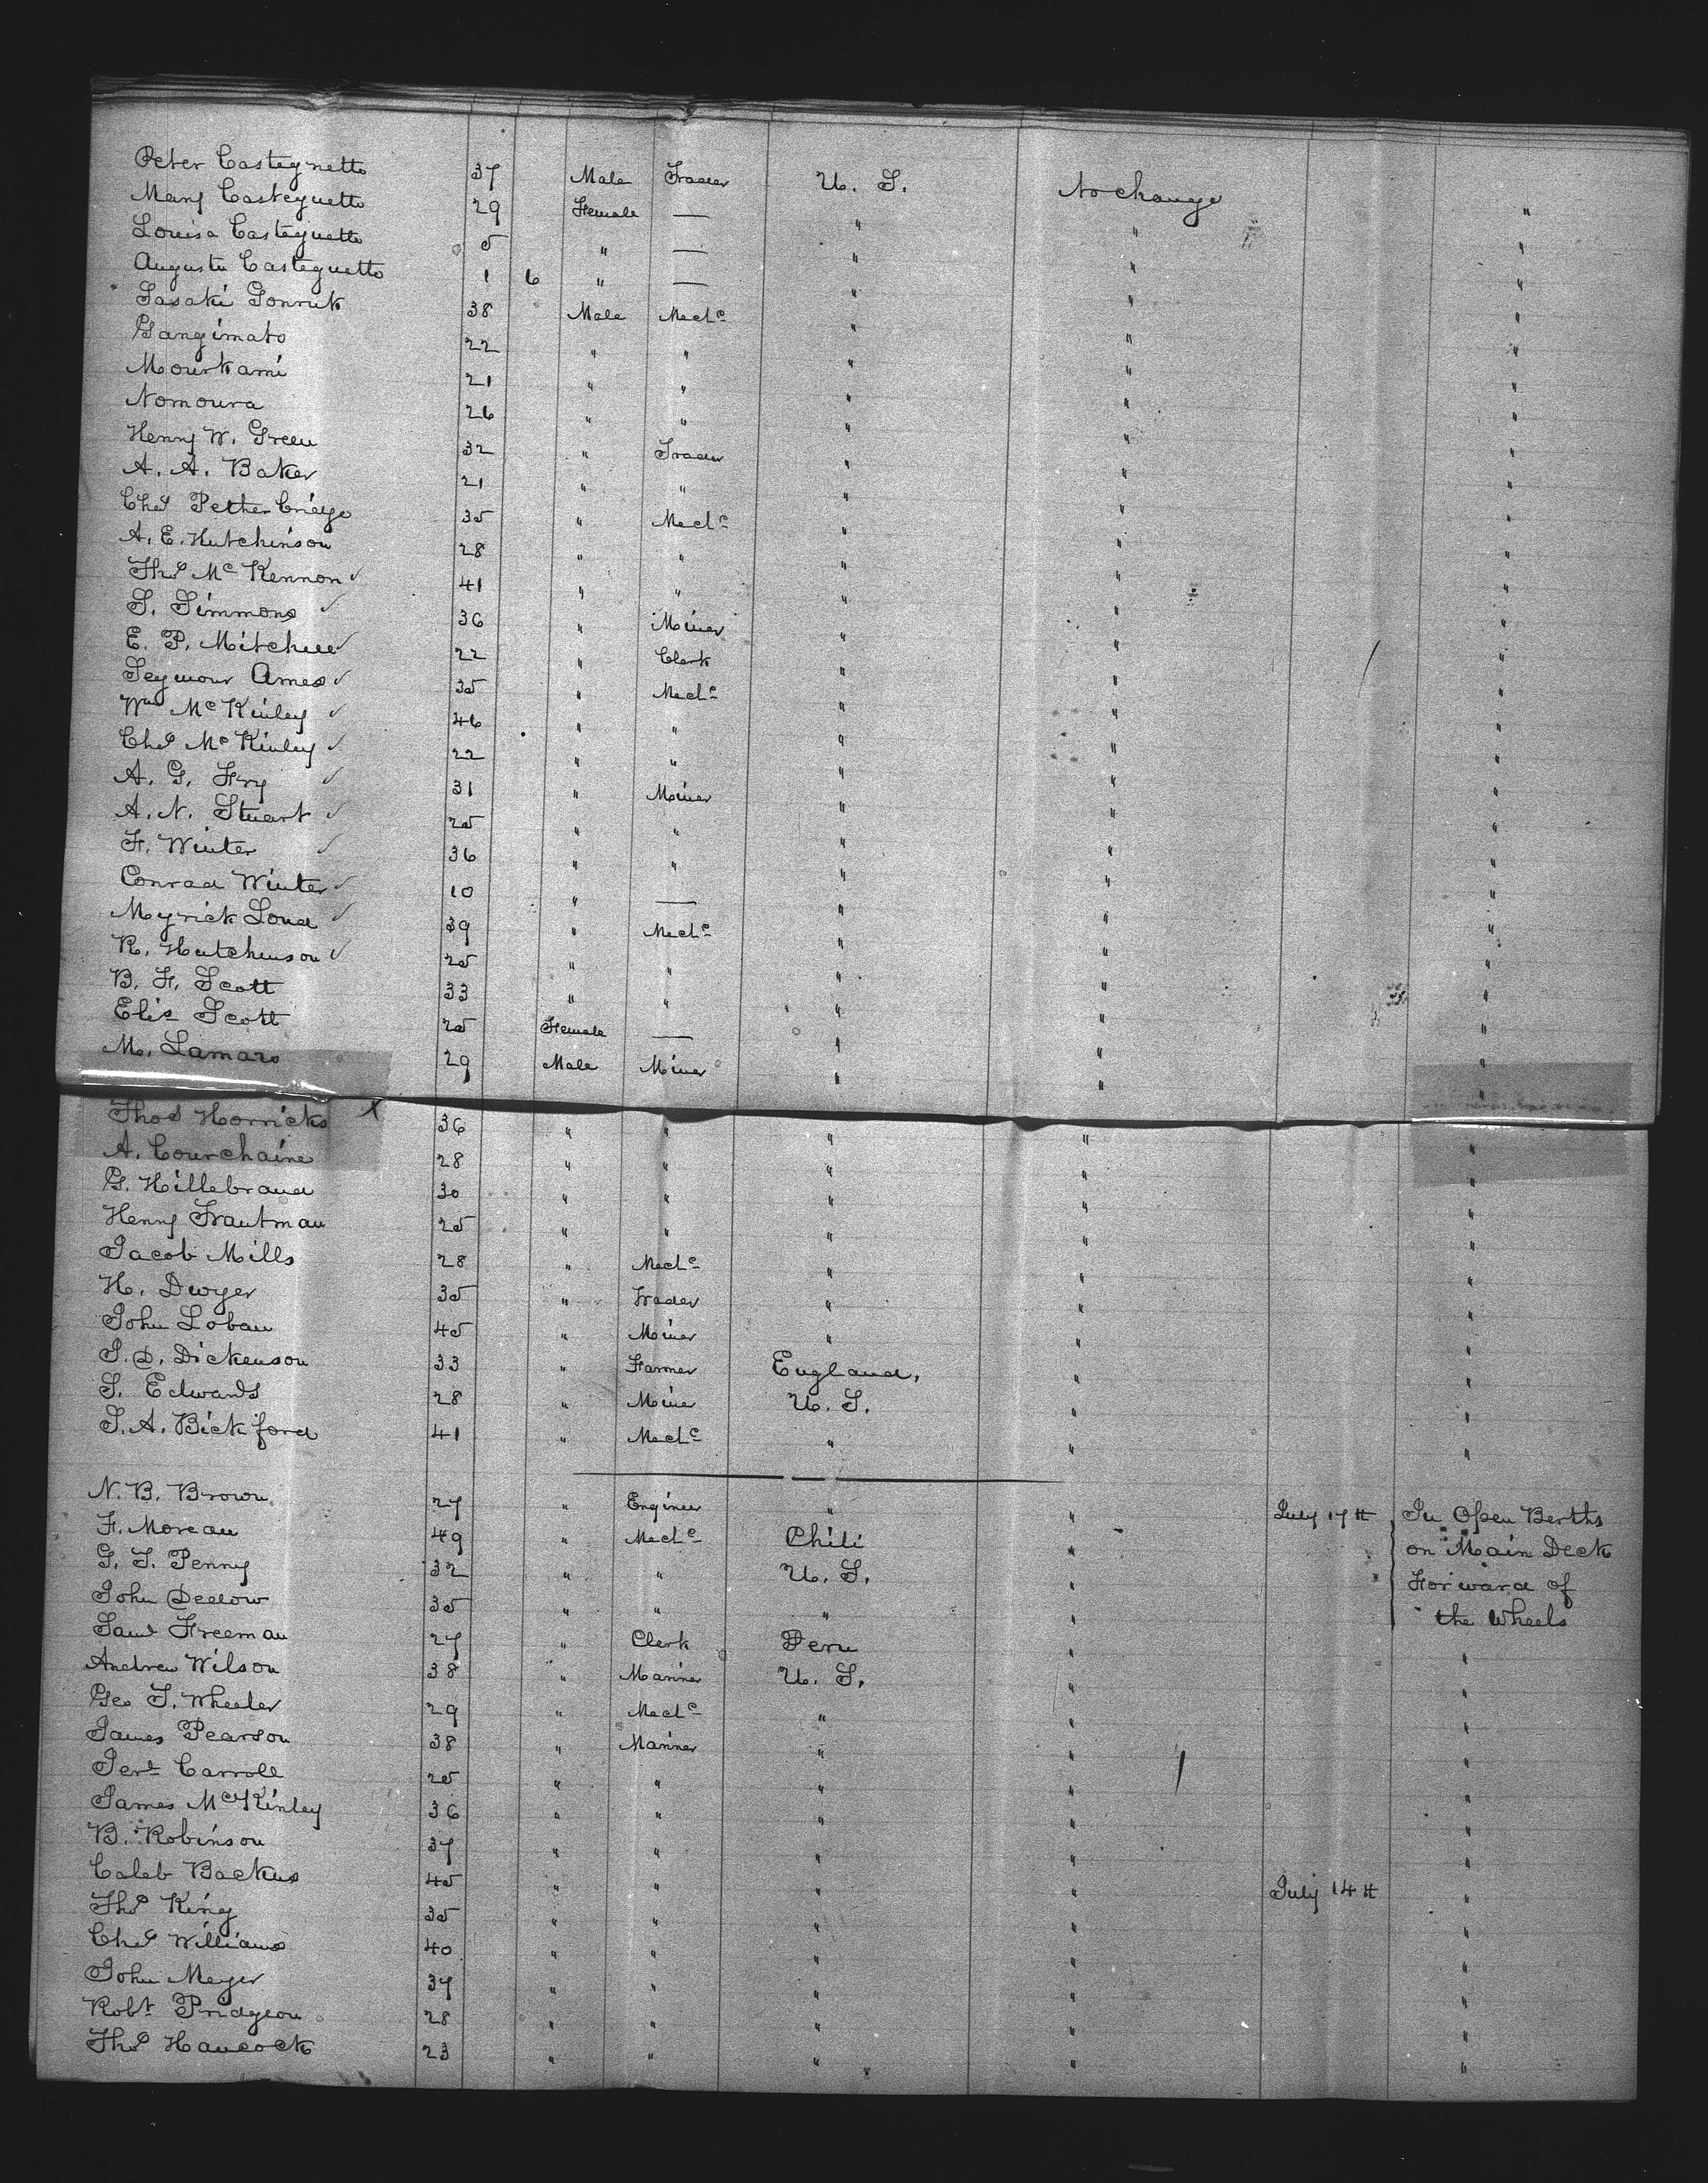 Peter Castegnetto 37 Male Trader U. S. No change "
Mary Castegnetto 29 Female — " " "
Louisa Castegnetto 5 " — " " "
Augusta Castegnetto 1 6 " — " " "
Sasaki Gonruk 38 Male Mechc " " "
Gangimato 22 " " " " "
Mourkami 21 " " " " "
Nomoura 26 " " " " "
Henry W. Green 32 " Trader " " "
A. A. Baker 21 " " " " "
Chas Petherbridge 35 " Mechc " " "
A. E. Hutchinson 28 " " " " "
Thos McKennon ✓ 41 " " " " "
S. Simmons ✓ 36 " Miner " " "
E. P. Mitchell ✓ 22 " Clerk " " "
Seymour Ames ✓ 35 " Mechc " " "
Wm McKinley ✓ 46 " " " " "
Chas McKinley ✓ 22 " " " " "
A. G. Fry ✓ 31 " Miner " " "
A. N. Stuart ✓ 25 " " " " "
F. Winter ✓ 36 " " " " "
Conrad Winter ✓ 10 " — " " "
Myrick Loud ✓ 39 " Mechc " " "
R. Hutchinson ✓ 25 " " " " "
B. F. Scott 33 " " " " "
Eliz Scott 25 Female — " " "
M. Lamars 29 Male Miner " " "
Thos Horricks X 36 " " " " "
A. Courchaine 28 " " " " "
G. Hillebrand 30 " " " " "
Henry Trautman 25 " " " " "
Jacob Mills 28 " Mechc " " "
H. Dwyer 35 " Trader " " "
John Loban 45 " Miner " " "
J. D. Dickenson 33 " Farmer England, " "
S. Edwards 28 " Miner U. S. " "
S. A. Bickford 41 " Mechc " " "
N. B. Brown 27 " Engineer " " July 17th In Open Berths
F. Moreau 49 " Mechc Chili " on Main Deck
G. T. Penny 32 " " U. S. " Forward of
John Deelow 35 " " " " the Wheels
Saml Freeman 27 " Clerk Peru " "
Andrew Wilson 38 " Mariner U. S. " "
Geo T. Wheeler 29 " Mechc " " "
James Pearson 38 " Mariner " " "
Jere Carroll 25 " " " " "
James McKinley 36 " " " " "
B. Robinson 37 " " " " "
Caleb Backus 45 " " " " July 14th "
Thos King 35 " " " " "
Chas Williams 40 " " " " "
John Meyer 37 " " " " "
Robt Pridgeon 28 " " " " "
Thos Hancock 23 " " " " "